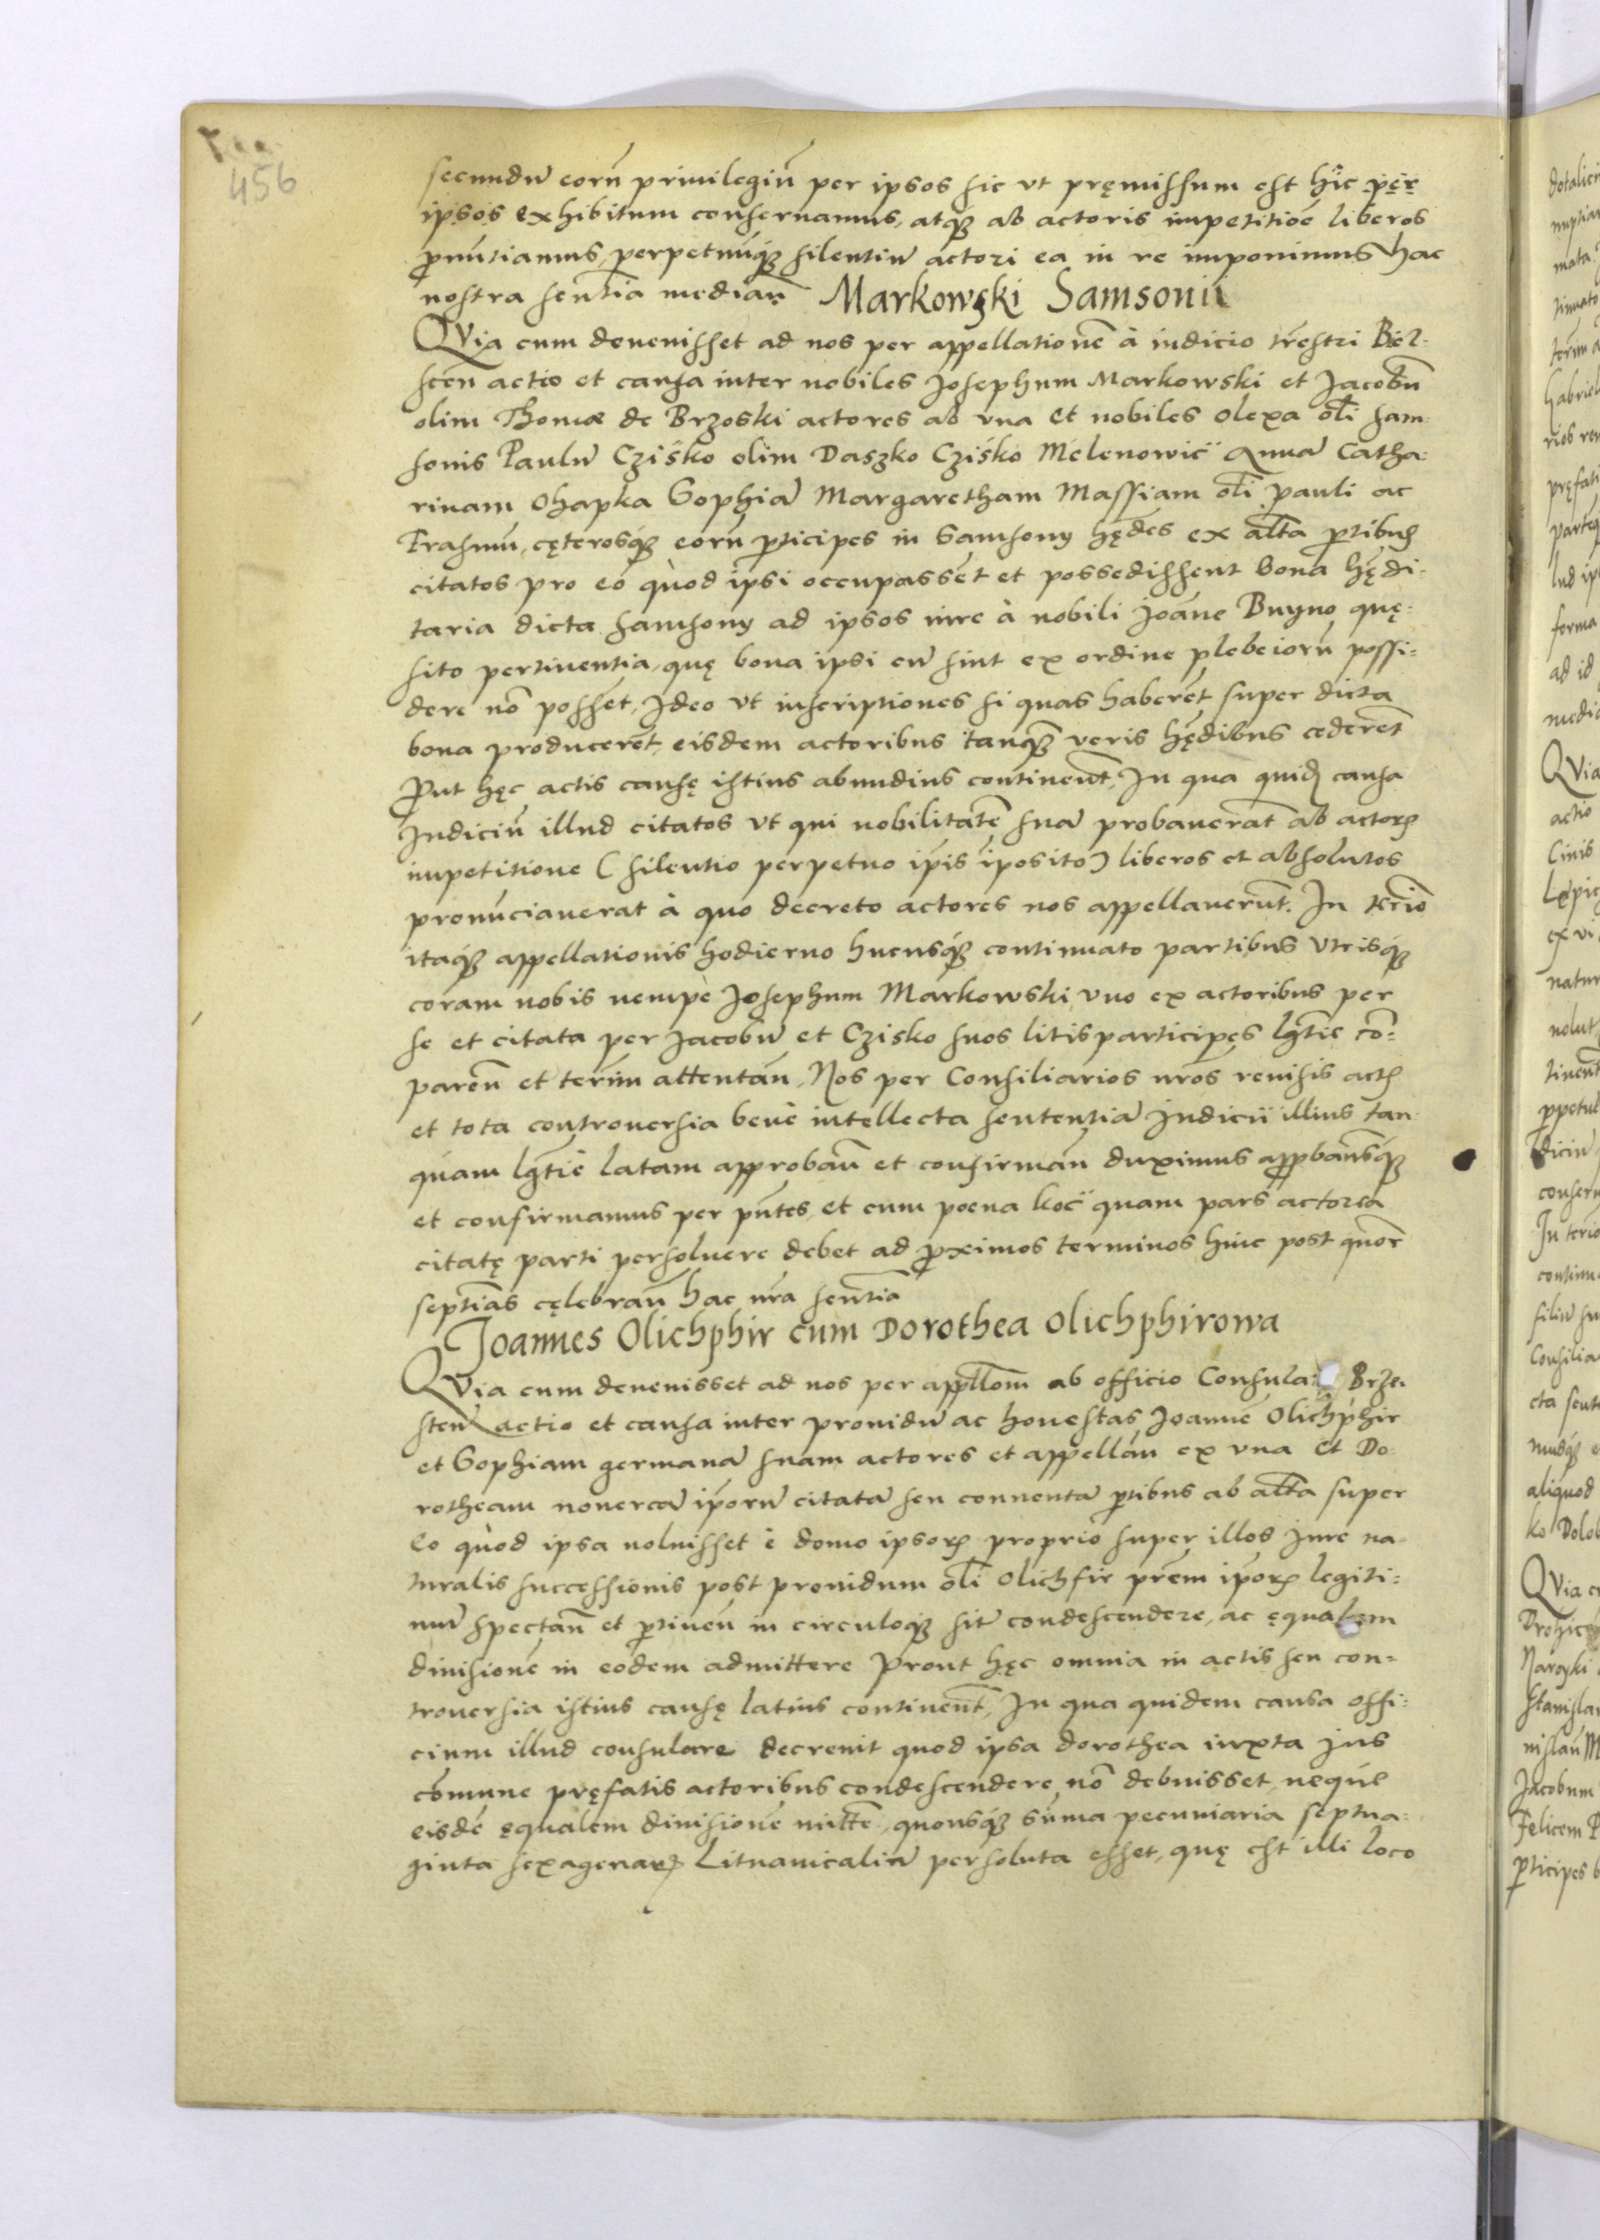 456
secundū eorū priuilegiū per ipsos sic vt pręmissum est hic per
ipsos exhibitum conseruamus, atqȝ ab actoris impetitiōe liberos
pronūtiamus, perpetuūqȝ silentiū actori ea in re imponimus hac
nostra sentētia mediān̄ Markowski Samsonii
QVia cum deuenisset ad nos per appellationē à iudicio trēstri Biel-
scen̄ actio et causa inter nobiles Josephum Markowski et Jacobū
olim Thomæ de Brzoski actores ab vna et nobiles olexa olī sam-
sonis Paulū Cziśko olim Daszko Cziśko Melenowic̈ Annā Catha-
rinam Ohapka Sophiā Margaretham Massiam olī pauli ac
Erasmū, cęterosqȝ eorū pticipes in Samsony hędes ex altā ptibus
citatos pro eo quòd ipsi occupassēt et possedissent bona hędi-
taria dicta samsony ad ipsos iure à nobili joāne Buyno quę-
sito pertinentia, quę bona ipsi cū sint ex ordine plebeiorū possi-
dere nō possēt, Jdeo vt inscriptiones si quas haberēt super dicta
bona producerēt, eisdem actoribus tanqȝ veris hędibus cederēt
Put hęc actis causę istius abundius continent̄, Jn qua quidē causa
Judiciū illud citatos vt qui nobilitatē suā probauerāt ab actorȝ
impetitione (silentio perpetuo ipīs īposito) liberos et absolutos
pronūciauerat à quo decreto actores nos appellauerūt. Jn terīo
itaqȝ appellationis hodierno hucusqȝ continuato partibus vtrisqȝ
coram nobis nempè Josephum Markowski vno ex actoribus per
se et citata per Jacobū et Czisko suos litisparticipes lg̃tīe cō-
paren̄ et termī attentān̄, Nos per Consiliarios nr̄os reuisis actȝ
et tota controuersia benè intellecta sententiā Judicii illius tan-
quam lg̃tīè latam approbān̄ et confirmān̄ duximus approbamusqȝ
et confirmamus per pn̄tes, et cum poena koc̈ quam pars actorea
citatę parti persoluere debet ad pximos terminos hinc post quor̄
septīas cęlebrān̄ hac nr̄a sentētia
Joannes Olichphir cum Dorothea Olichphirowa
QVia cum deuenisset ad nos per appllōm ab officio Consula: Brze-
sten̄ actio et causa inter prouidū ac honestas Joannē Olichphir
et Sophiam germanā suam actores et appellān̄ ex vna et Do-
rotheam nouercā ipōrū citatā seu conuentā ptibus ab altā super
eo quòd ipsa noluisset è domo ipsorȝ proprio super illos Jure na-
turalis successionis post prouidum olī olichfir prēm ipōrȝ legiti-
mū spectān̄ et ptinen̄ in circuloqȝ sitā condescendere, ac ęqualem
diuisionē in eodem admittere Prout hęc omnia in actis seu con-
trouersia istius causę latius continent̄, Jn qua quidem causa offi-
cium illud consulare decreuit quod ipsa dorothea iuxta jus
cōmune pręfatis actoribus condescendere nō debuisset neque
eisdē ęqualem diuisionē mittē, quousqȝ sūma pecuniaria septua-
ginta sexagenarȝ Lituanicaliū persoluta esset, quę est illi loco